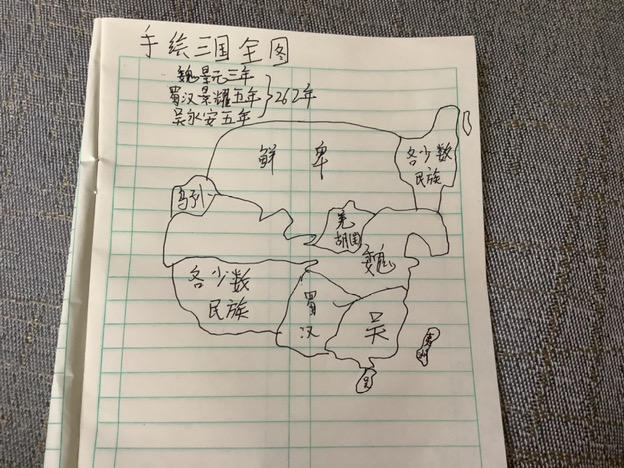 手绘三国全图
魏景元三年
蜀汉景耀五年
吴永安五年
262年
鲜卑
各少数
民族
乌孙
羌
胡国
魏
各少数
民族
蜀
汉
吴
夷
州
吴